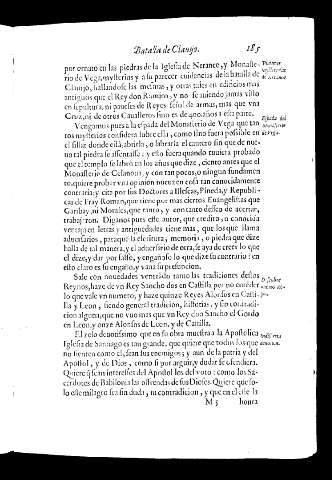 Batalla de Clauijo. 185
por ornato en las piedras de la Iglesia de Neranco, y Monaste-
rio de Vega, mysterios y a su parecer euidencias de la batalla de
Clauijo, hallandose las mesmas, y otras tales en edificios mas
antiguos que el Rey don Ramiro, y no se auiendo jamas visto
en sepultura, ni paueses de Reyes señal de armas, mas que vna
Cruz, ni de otros Caualleros sino es de 400. años a esta parte.
Vengamos pues a la espada del Monasterio de Vega que tan
tos mysterios considera sobre ella, como sino fuera possible en
el sillar donde està, abrirla, o labrarla el cantero sin que de nue-
uo tal piedra se assentasse: y esto fuera quando tuuiera probado
que el templo se labrò en los años que dize, ciento antes que el
Monasterio de Celanoua, y con tan pocos, o ningun fundamen
to, quiere probar vna opinion nueua en cosa tan conocidamente
contraria; y cita por sus Doctores a Illescas, Pineda, y Republi-
cas de Fray Roman, que tiene por mas ciertos Euangelistas que
Garibay, ni Morales, que tanto, y con tanto desseo de acertar,
trabajaron. Diganos pues este autor, que credito, o conocida
ventaja en letras y antiguedades tiene mas, que los que llama
aduersarios, para que la escritura, memoria, o piedra que dize
halla de tal manera, y el aduersario de otra, se aya de creer lo que
el dize, y dar por falso, y engaño lo que dize su contrario: en
esto claro es su engaño, y vana su pretencion.
Sale con nouedades
Reynos, haze de vn Rey Sancho dos en Castilla por no conceder
lo que vale vn numero, y haze quinze Reyes Alonsos en Casti-
lla y Leon, siendo general tradicion, historias, y sin contradi-
cion alguna, que no vuo mas que vn Rey don Sancho el Gordo
en Leon, y onze Alonsos de Leon, y de Castilla.
El zelo deuotissimo que en su obra muestra a la Apostolica
Iglesia de Santiago es tan grande, que quiere que todos los que
no sienten como el, sean sus enemigos; y aun de la patria y del
Apostol, y de Dios, como si por arguir y dudar se ofendiera.
Quiere q̃ sean interesses del Apostol los del voto: como los Sa-
cerdotes de Babilonia las ofrendas de sus Dioses. Quiere que so-
lo este milagro sea sin duda, ni contradicion, y que en el este la
M 5 honra